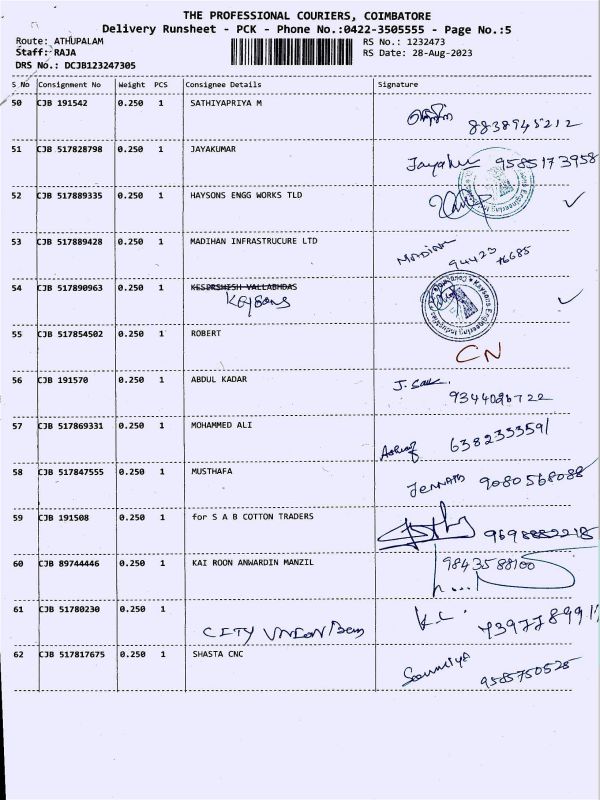 THE PROFESSIONAL COURIERS, COIMBATORE
Delivery Runsheet - PCK - Phone No.:0422-3505555 - Page No.:5
Route: ATHUPALAM
RS No.: 1232473
Staff: RAJA
RS Date: 28-Aug-2023
DRS No.: DCJB123247305
S No Consignment No Weight PCS Consignee Details Signature
50 CJB 191542 0.250 1 SATHIYAPRIYA M
8838945212
51 CJB 517828798 0.250 1 JAYAKUMAR
9585173958
52 CJB 517889335 0.250 1 HAYSONS ENGG WORKS TLD
53 CJB 517889428 0.250 1 MADIHAN INFRASTRUCURE LTD
94423 76685
54 CJB 517890963 0.250 1
Kaysons
55 CJB 517854502 0.250 1 ROBERT
CN
56 CJB 191570 0.250 1 ABDUL KADAR
57 CJB 517869331 0.250 1 MOHAMMED ALI
6382333591
58 CJB 517847555 0.250 1 MUSTHAFA
JENNATH 9080568088
59 CJB 191508 0.250 1 for S A B COTTON TRADERS
9698882218
60 CJB 89744446 0.250 1 KAI ROON ANWARDIN MANZIL
9843588100
61 CJB 51780230 0.250 1
CITY UNION Bank K.C.
62 CJB 517817675 0.250 1 SHASTA CNC
Sowmiya 9585750525